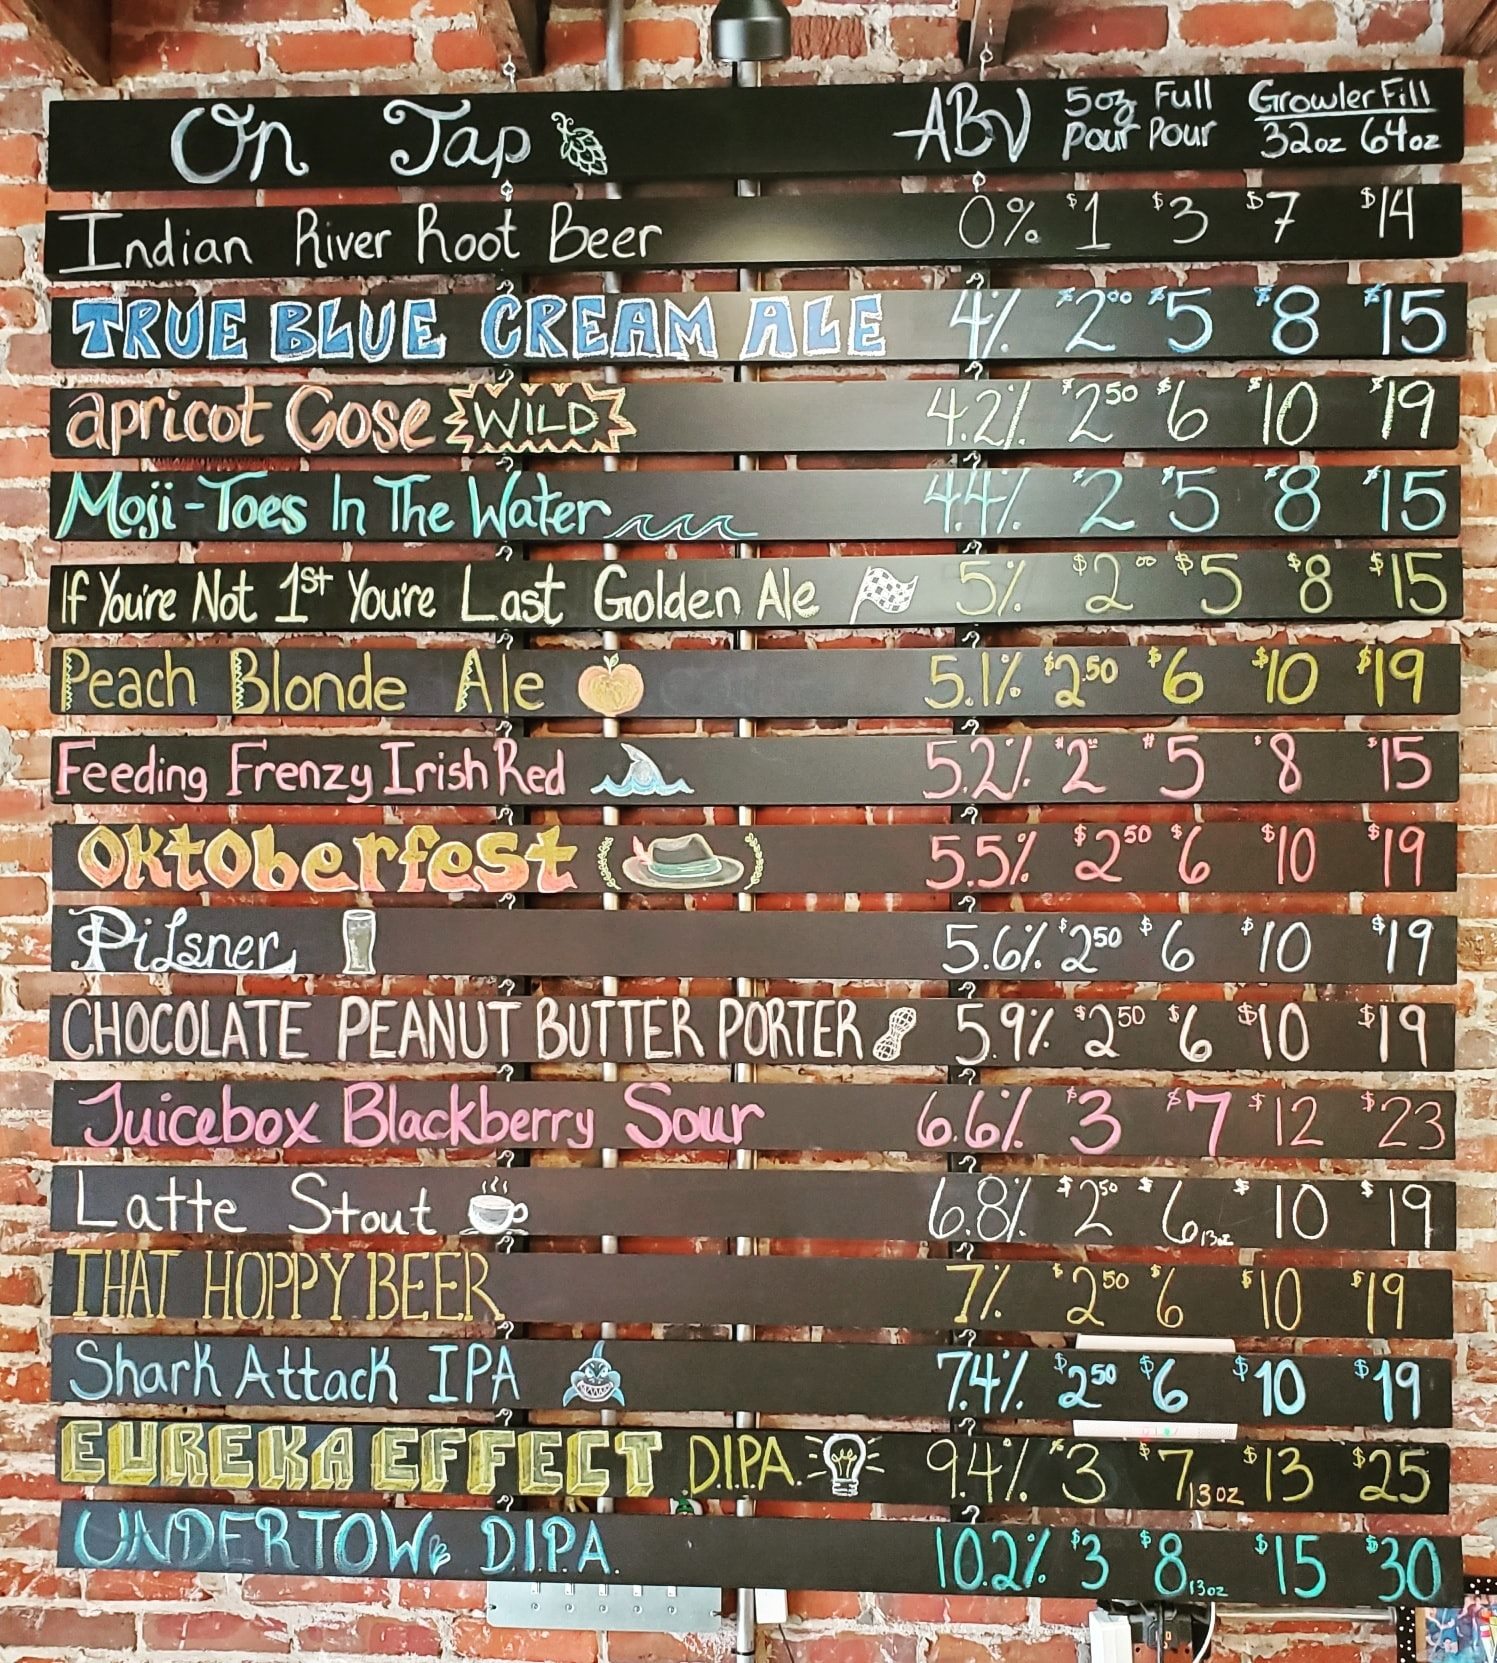 On Tap ABV 5oz Pour Full Pour Growler Fill 32oz 64oz
Indian River Root Beer 0% $1 $3 $7 $14
TRUE BLUE CREAM ALE 4% $2.00 $5 $8 $15
apricot Gose WILD 4.2% $2.50 $6 $10 $19
Moji-Toes In The Water 4.4% $2 $5 $8 $15
If You're Not 1st You're Last Golden Ale 5% $2.00 $5 $8 $15
Peach Blonde Ale 5.1% $2.50 $6 $10 $19
Feeding Frenzy Irish Red 5.2% $2.00 $5 $8 $15
Oktoberfest 5.5% $2.50 $6 $10 $19
Pilsner 5.6% $2.50 $6 $10 $19
CHOCOLATE PEANUT BUTTER PORTER 5.9% $2.50 $6 $10 $19
Juicebox Blackberry Sour 6.6% $3 $7 $12 $23
Latte Stout 6.8% $2.50 $6 13oz $10 $19
THAT HOPPY BEER 7% $2.50 $6 $10 $19
Shark Attack IPA 7.4% $2.50 $6 $10 $19
EUREKA EFFECT D.I.P.A. 9.4% $3 $7 13oz $13 $25
UNDERTOW D.I.P.A. 10.2% $3 $8 13oz $15 $30